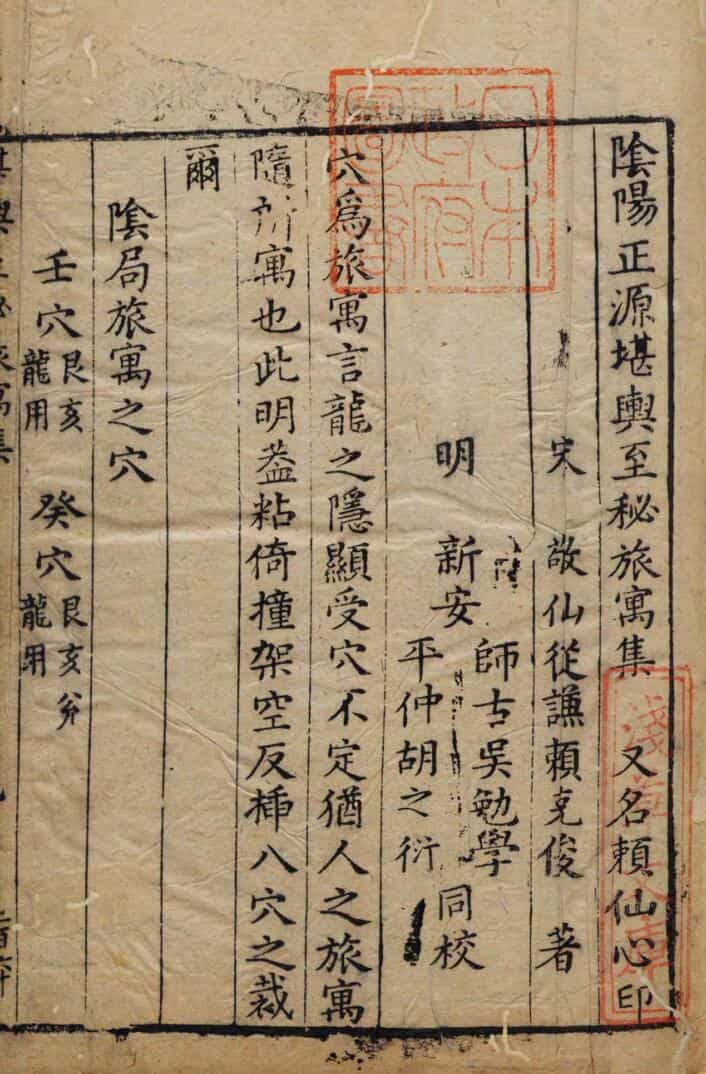 陰陽正源堪輿至秘旅寓集　又名賴仙心印
宋　敬仙從謙賴克俊　著
明　新安　師古吳勉學
平仲胡之衍　同校
穴爲旅寓言龍之隱顯受穴不定猶人之旅寓
隨所寓也此明葢粘倚撞架空反揷八穴之裁
爾
陰局旅寓之穴
壬穴艮亥龍用　癸穴艮亥龍用
日本政府圖書
淺草文庫